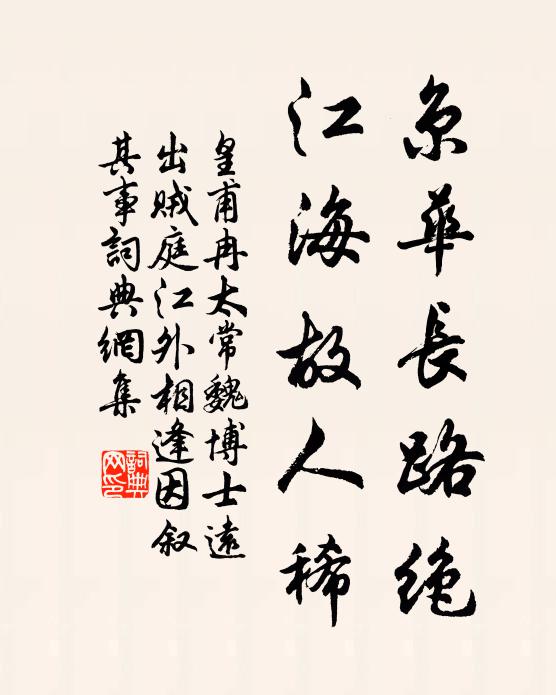 京華長路絶
江海故人稀
皇甫冉太常魏博士遠
出賊庭江外相逢因叙
其事詞典網集
詞典
网印